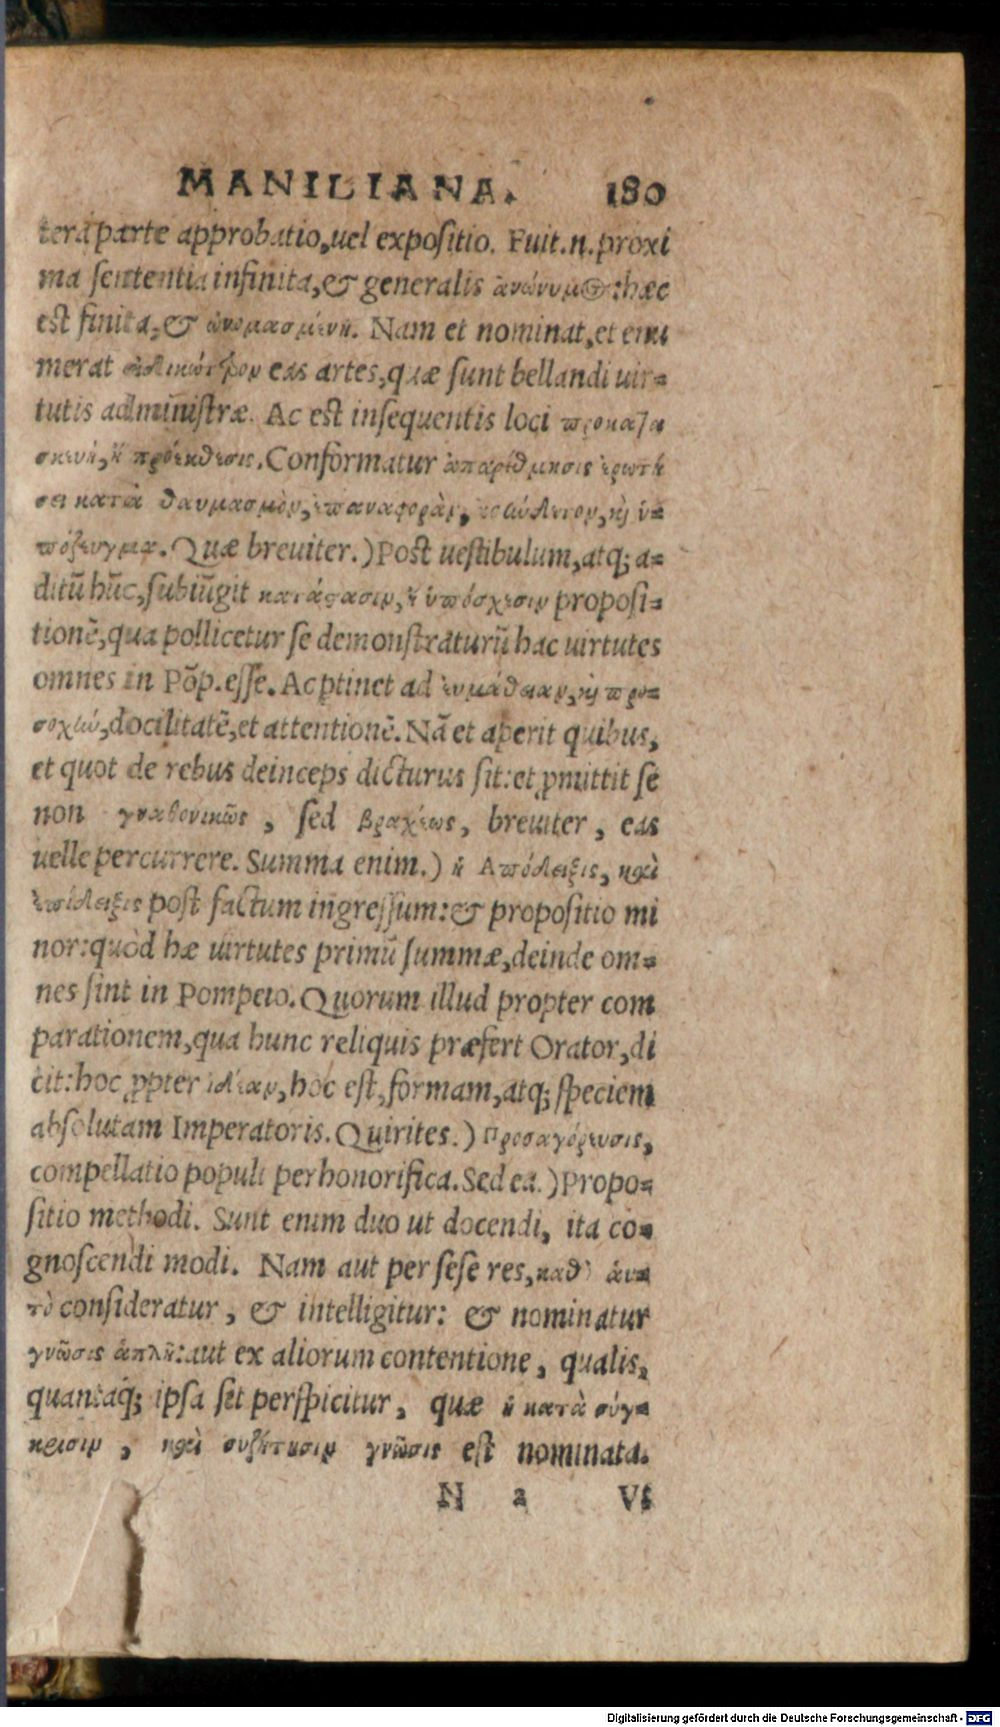 MANILIANA. 180
tera parte approbatio, uel expositio. Fuit.n.proxi
ma sententia infinita, & generalis ἀνώνυμος: hæc
est finita, & ὠνομασμένη. Nam et nominat, et enu
merat εἰδικώτερον eas artes, quæ sunt bellandi uir=
tutis administræ. Ac est insequentis loci προκατα
σκευή, ἢ πρόεκθεσις. Conformatur ἀπαρίθμησις ἐρωτή
σει κατὰ θαυμασμὸν, ἐπαναφορὰν, ἀσύνδετον, καὶ ὑ=
πόζευγμα. Quæ breuiter.) Post uestibulum, atq; a=
ditū hūc, subiūgit κατάφασιν, ἢ ὑπόσχεσιν proposi=
tionē, qua pollicetur se demonstraturū hac uirtutes
omnes in Pōp. esse. Ac ꝑtinet ad εὐμάθειαν, καὶ προ=
σοχὴν, docilitatē, et attentionē. Nā et aperit quibus,
et quot de rebus deinceps dicturus sit: et ꝓmittit se
non γναθονικῶς, sed βραχέως, breuiter, eas
uelle percurrere. Summa enim.) ἡ Ἀπόδειξις, καὶ
ἐπίδειξις post factum ingressum: & propositio mi
nor: quòd hæ uirtutes primū summæ, deinde om=
nes sint in Pompeio. Quorum illud propter com
parationem, qua hunc reliquis præfert Orator, di
cit: hoc ꝓpter ἰδέαν, hoc est, formam, atq; speciem
absolutam Imperatoris. Quirites.) Προσαγόρευσις,
compellatio populi perhonorifica. Sed ea.) Propo=
sitio methodi. Sunt enim duo ut docendi, ita co=
gnoscendi modi. Nam aut per sese res, καθ' ἁυ=
τὸ consideratur, & intelligitur: & nominatur
γνῶσις ἁπλῆ: aut ex aliorum contentione, qualis,
quantaq́; ipsa sit perspicitur, quæ ἡ κατὰ σύγ=
κρισιν, καὶ συζήτησιν γνῶσις est nominata.
N 2 Vt
Digitalisierung gefördert durch die Deutsche Forschungsgemeinschaft - DFG